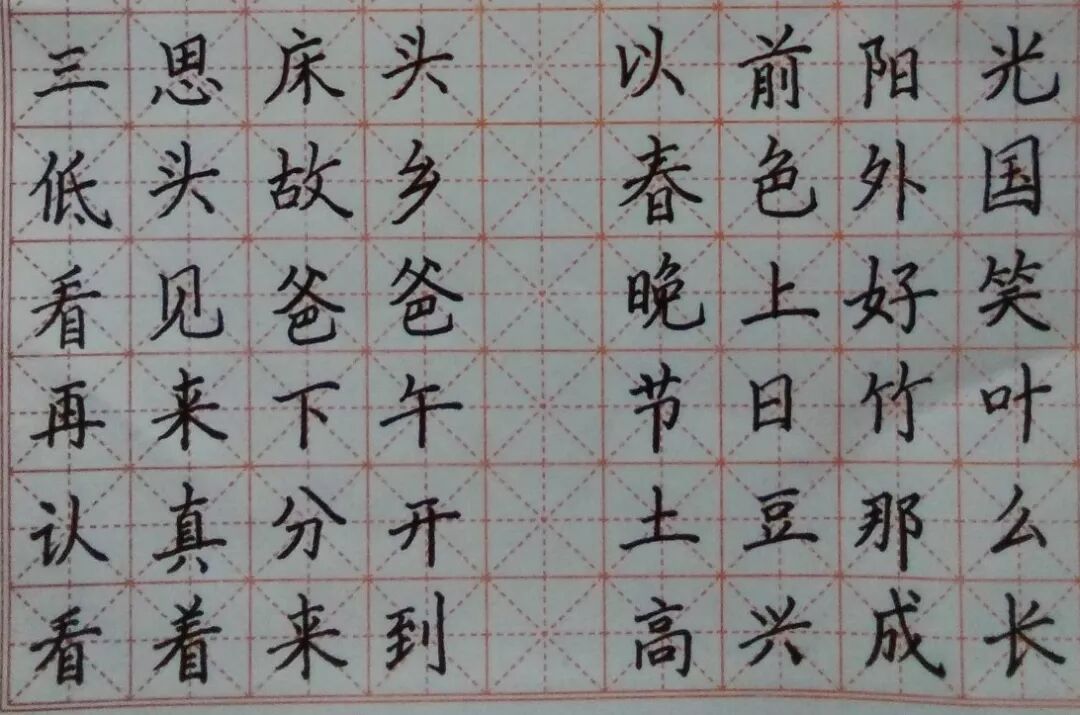 三思床头 以前阳光
低头故乡 春色外国
看见爸爸 晚上好笑
再来下午 节日竹叶
认真分开 土豆那么
看着来到 高兴成长